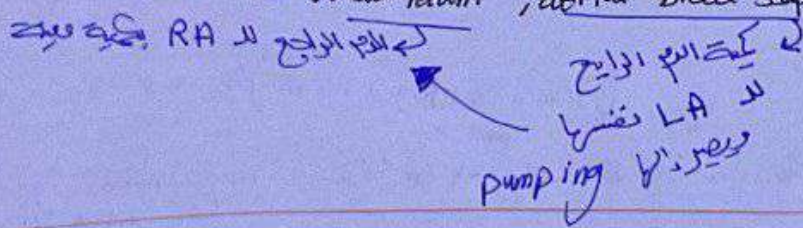 الدم الراجع لل RA بكمية معينة
كمية الدم الرايح
لل LA نفسها
ويصير الها
pumping